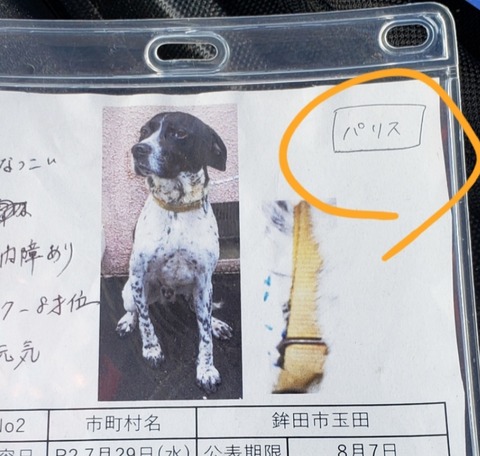 パリス
なつこい
内障あり
7-8才位
元気
No2 市町村名 鉾田市玉田
容日 R2 7月29日(水) 公表期限 8月7日